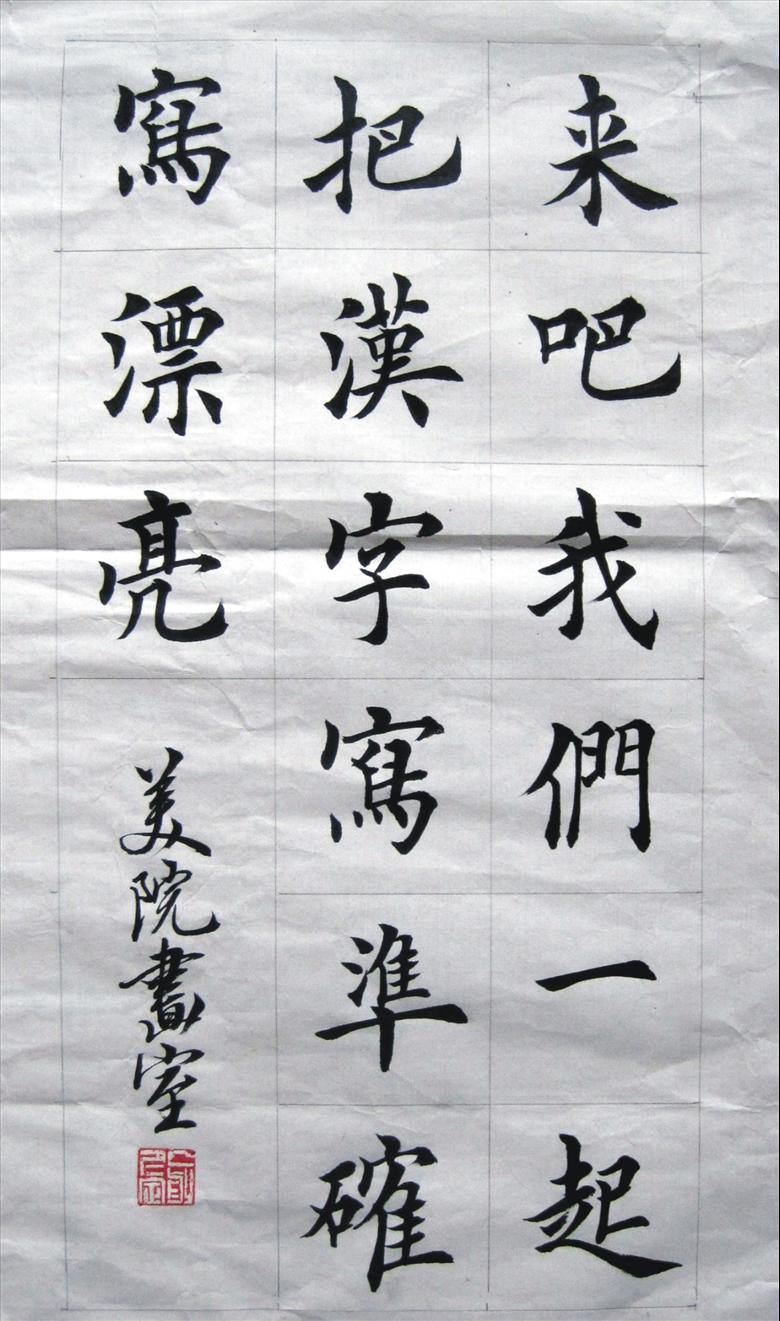 来吧我們一起
把漢字寫準確
寫漂亮
美院畫室